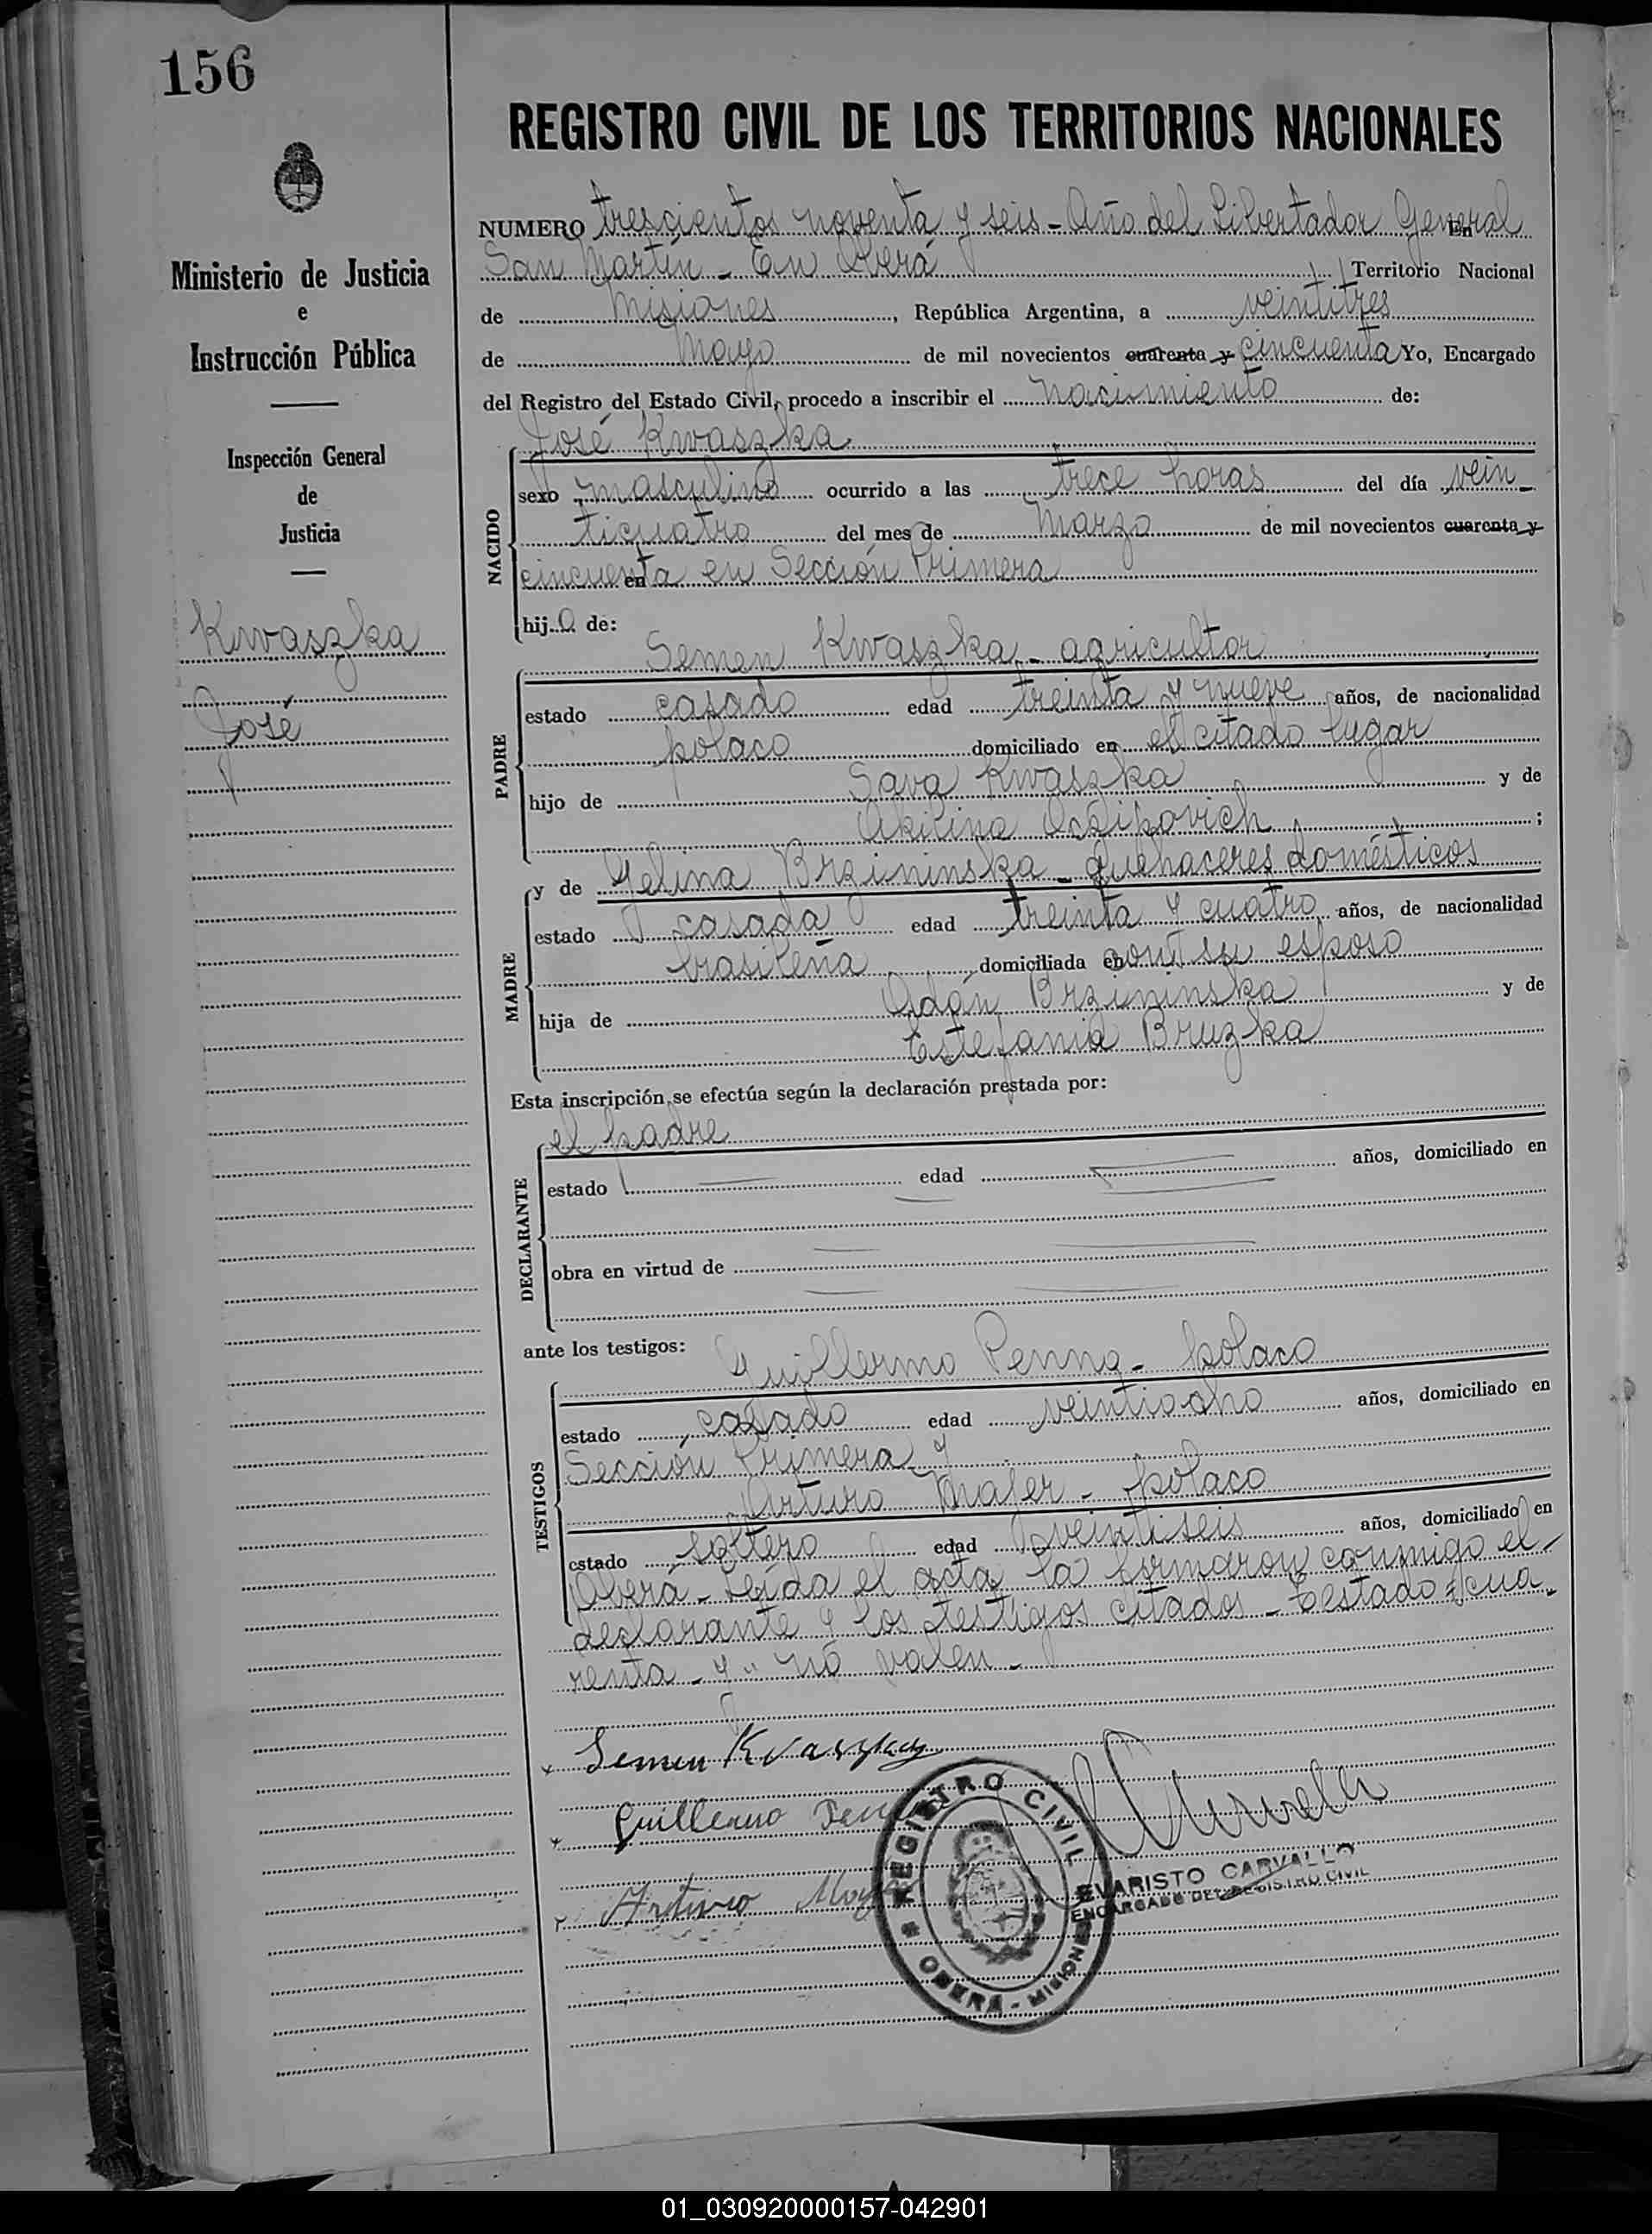 156
REGISTRO CIVIL DE LOS TERRITORIOS NACIONALES
Ministerio de Justicia
e
Instrucción Pública
Inspección General
de
Justicia
Kwaszka
José
NUMERO trescientos noventa y seis - Año del Libertador General En
San Martín - En Oberá Territorio Nacional
de Misiones, República Argentina, a veintitres
de Mayo de mil novecientos cuarenta y cincuenta Yo, Encargado
del Registro del Estado Civil, procedo a inscribir el nacimiento de:
José Kwaszka
NACIDO
sexo masculino ocurrido a las trece horas del día vein-
ticuatro del mes de Marzo de mil novecientos cuarenta y
cincuenta en en Sección Primera
hijo de:
Semen Kwaszka - agricultor
PADRE
estado casado edad treinta y nueve años, de nacionalidad
polaco domiciliado en el citado lugar
hijo de Sava Kwaszka y de
Akilina Oczipovich;
y de Gelina Brzininska - quehaceres domésticos
MADRE
estado casada edad treinta y cuatro años, de nacionalidad
brasileña domiciliada en con su esposo
hija de Adán Brzininska y de
Estefania Bruzka
Esta inscripción se efectúa según la declaración prestada por:
el padre
DECLARANTE
estado edad años, domiciliado en
obra en virtud de
ante los testigos:
Guillermo Penno - polaco
TESTIGOS
estado casado edad veintiocho años, domiciliado en
Sección Primera y
Arturo Majer - polaco
estado soltero edad veintiseis años, domiciliado en
Oberá - Leída el acta la firmaron conmigo el
declarante y los testigos citados - Testado "cua-
renta - y" nó valen -
Semen Kvaszka
Guillermo
Arturo
REGISTRO CIVIL
OBERÁ - MISIONES
EVARISTO CARVALLO
ENCARGADO DEL REGISTRO CIVIL
01_030920000157-042901